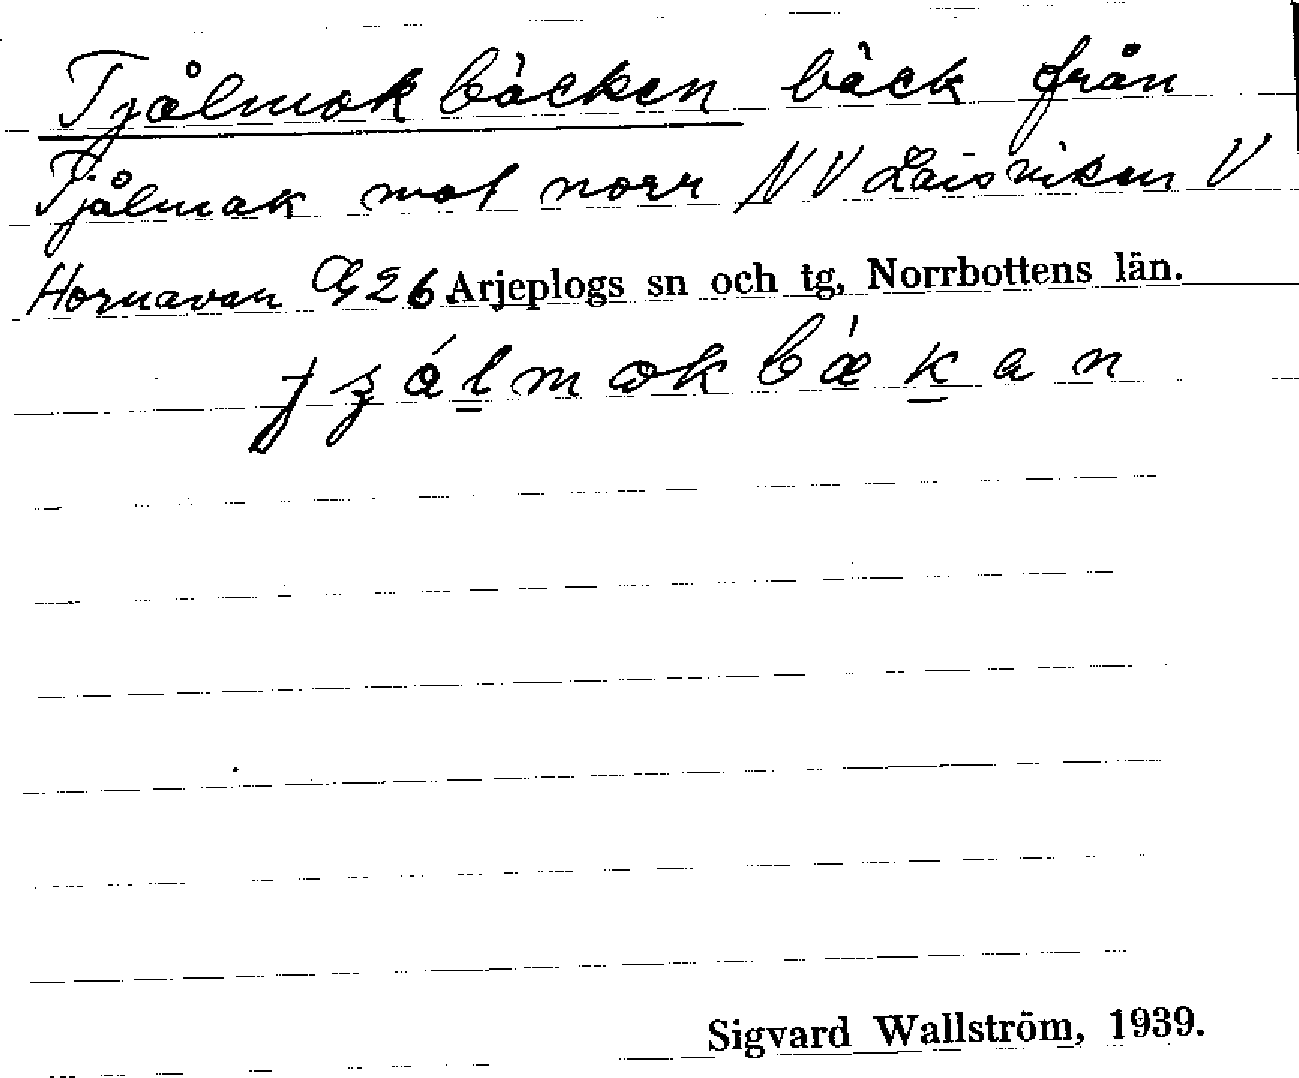 Tjålmokbäcken bäck från
Tjålmak mot norr NV Laisviken V
Hornavan G26 Arjeplogs sn och tg, Norrbottens län.
bäkan
Sigvard Wallström, 1939.